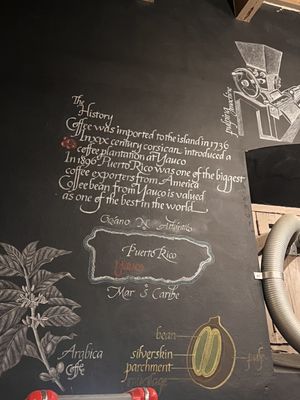 The
History
Coffee was imported to the island in 1736
In XIX century corsican introduced a
coffee plantation at Yauco
In 1896 Puerto Rico was one of the biggest
coffee exporters from America
Coffee bean from Yauco is valued
as one of the best in the world
Océano Atlántico
Puerto Rico
Yauco
Mar Caribe
pulping machine
Arabica
Coffe
bean
silverskin
parchment
mucilage
pulp